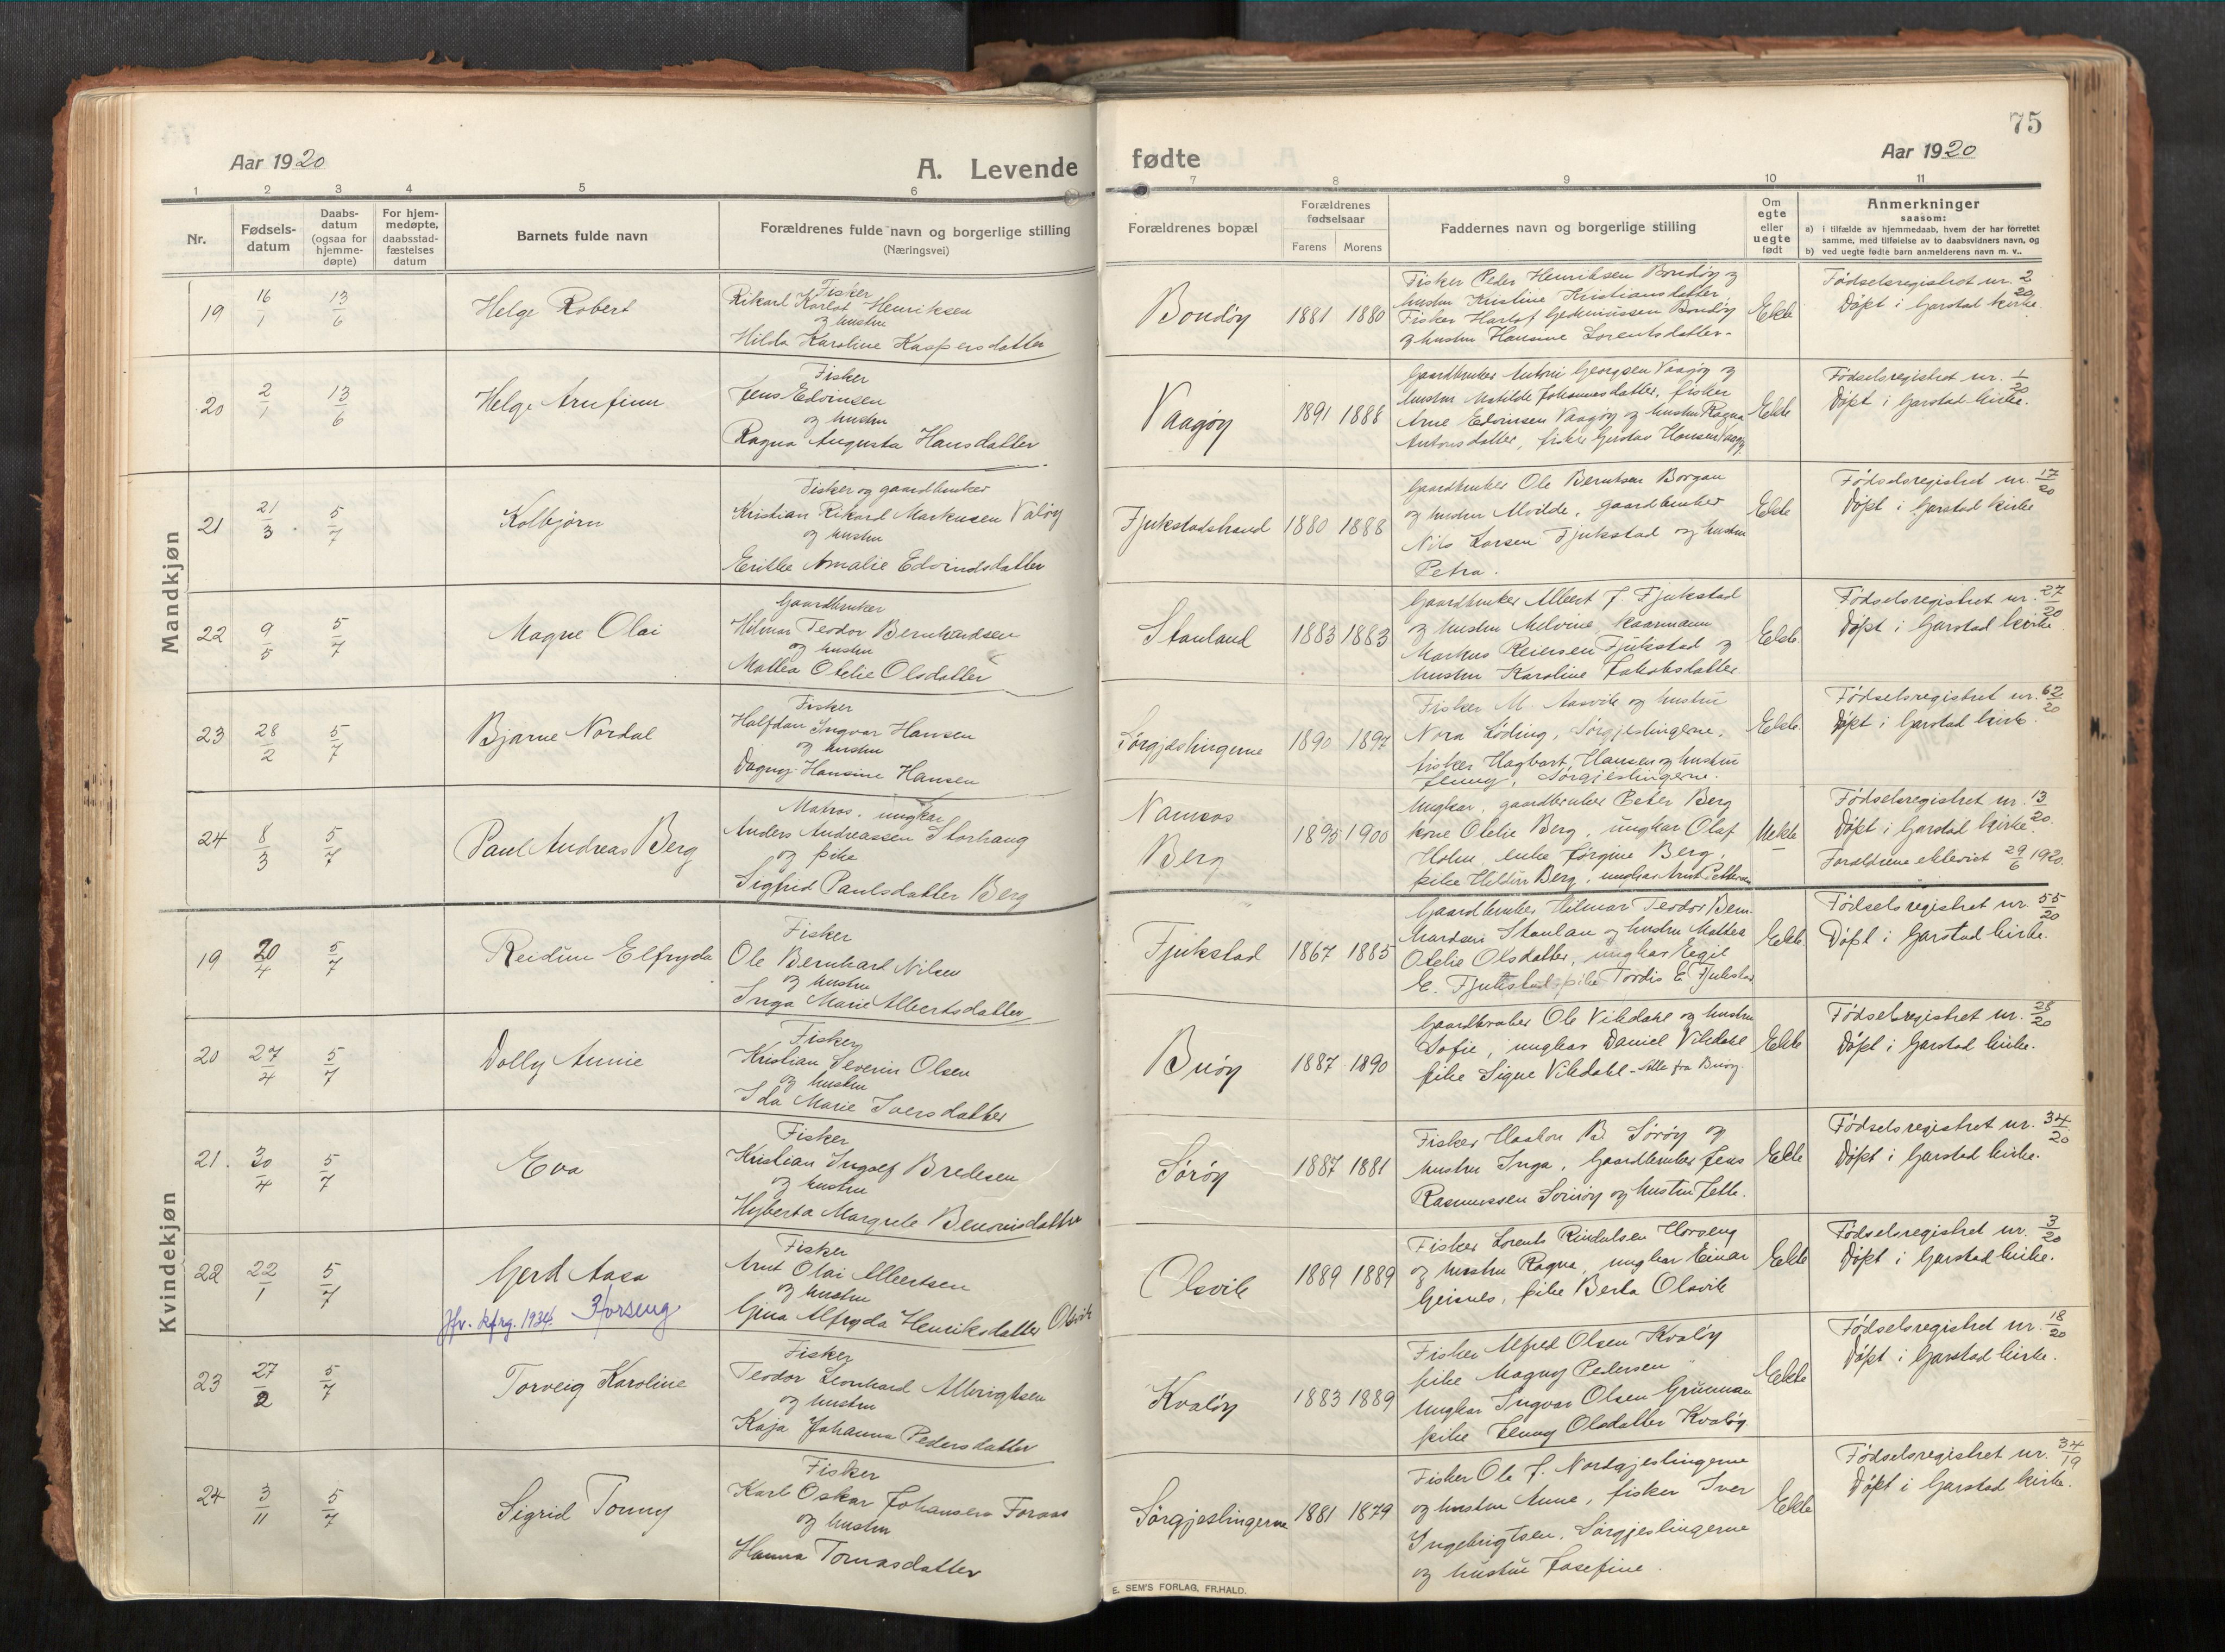 75
Aar 1920
A. Levende
fødte
Aar 1920
1 2 3 4 5 6 7 8 9 10 11
Nr.
Fødsels-
datum
Daabs-
datum
(ogsaa for
hjemme-
døpte)
For hjem-
medøpte,
daabsstad-
fæstelses
datum
Barnets fulde navn
Forældrenes fulde navn og borgerlige stilling
(Næringsvei)
Forældrenes bopæl
Forældrenes
fødselsaar
Farens Morens
Faddernes navn og borgerlige stilling
Om
egte
eller
uegte
født
Anmerkninger
saasom:
a) i tilfælde av hjemmedaab, hvem der har forrettet
samme, med tilføielse av to daabsvidners navn, og
b) ved uegte fødte barn anmelderens navn m. v..
Mandkjøn
19 16/1 13/6 Helge Robert
Fisker
Rikard Karlot Henriksen
og hustru
Hilda Karoline Kaspersdatter
Bondøy 1881 1880
Fisker Peder Henriksen Bondøy og
hustru Kristine Kristiansdatter
Fisker Harlof Bondøy
og hustru Hansine Lorentsdatter
Ekte
Fødselsregistret nr. 2/20
Døpt i Garstad kirke.
20 2/1 13/6 Helge Arnfinn
Fisker
Jens Edvinsen
og hustru
Ragna Augusta Hansdatter
Vaagøy 1891 1888
Gaardbruker Antoni Georgsen Vaagøy og
hustru Matilde Johannesdatter, fisker
Arne Edvinsen Vaagøy og hustru Ragna
Antonsdatter, fisker Gustav Hansen Vaagøy
Ekte
Fødselsregistret nr. 1/20
Døpt i Garstad kirke.
21 21/3 5/7 Kolbjørn
Fisker og gaardbruker
Kristian Rikard Markusen Valøy
og hustru
Erikke Amalie Edvindsdatter
Fjukstadstrand 1880 1888
Gaardbruker Ole Berntsen Borgan
og hustru Alvilde, gaardbruker
Nils Larsen Fjukstad og hustru
Petra.
Ekte
Fødselsregistret nr. 17/20
Døpt i Garstad kirke
22 9/5 5/7 Magne Olai
Gaardbruker
Hilmar Teodor Bernhardsen
og hustru
Mattea Otelie Olsdatter
Stanland 1883 1883
Gaardbruker Albert J. Fjukstad
og hustru Melvine
Markus Reiersen Fjukstad og
hustru Karoline Jakobsdatter
Ekte
Fødselsregistret nr. 27/20
Døpt i Garstad kirke.
23 28/2 5/7 Bjarne Nordal
Fisker
Halfdan Ingvar Hansen
og hustru
Dagny Hansine Hansen
Sørgjeslingerne 1890 1897
Fisker M. Aasvik og hustru
Nora Løding, Sørgjeslingerne,
fisker Hagbart Hansen og hustru
Jenny, Sørgjeslingerne.
Ekte
Fødselsregistret nr. 62/20
Døpt i Garstad kirke.
24 8/3 5/7 Paul Andreas Berg
Matros, ungkar
Anders Andreassen Storhaug
og pike
Sigfrid Paulsdatter Berg
Namsos
Berg
1895 1900
Ungkar, gaardbruker Peter Berg
kone Otelie Berg, ungkar Olaf
Holm, enke Jørgine Berg,
pike Berg, ungkar Arnt Pettersen
Uekte
Fødselsregistret nr. 13/20.
Døpt i Garstad kirke.
Forældrene ekteviet 29/6 1920.
Kvindekjøn
19 20/4 5/7 Reidun Elfryda
Fisker
Ole Bernhart Nilsen
og hustru
Inga Marie Albertsdatter
Fjukstad 1867 1885
Gaardbruker Hilmar Teodor Bern-
hardsen Stanlan og hustru Mattea
Otelie Olsdatter, ungkar Egil
E. Fjukstad, pike Tordis E. Fjukstad
Ekte
Fødselsregistret nr. 55/20
Døpt i Garstad kirke.
20 27/4 5/7 Dolly Annie
Fisker
Kristian Severin Olsen
og hustru
Ida Marie Iversdatter
Buøy 1887 1890
Gaardbruker Ole Vikdahl og hustru
Sofie, ungkar Daniel Vikdahl
pike Signe Vikdahl - Alle fra Buøy.
Ekte
Fødselsregistret nr. 28/20
Døpt i Garstad kirke.
21. 30/4 5/7 Eva
Fisker
Kristian Ingolf Bredesen
og hustru
Hyberta Margrete Benonisdatter
Sørøy 1887 1881
Fisker Haakon B. Sørøy og
hustru Inga, Gaardbruker Jens
Rasmussen Sørøy og hustru Jette.
Ekte
Fødselsregistret nr. 34/20
Døpt i Garstad kirke.
22 22/1 5/7 Gerd Aasa
Jfr. kfrg. 1934. Horseng
Fisker
Arnt Olai Albertsen
og hustru
Gina Alfryda Henriksdatter Olsvik
Olsvik 1889 1889
Fisker Lorents Rindulsen Horseng
og hustru Ragna, ungkar Einar
Geisnes, pike Berta Olsvik
Ekte
Fødselsregistret nr. 3/20
Døpt i Garstad kirke.
23 27/2 5/7 Torveig Karoline
Fisker
Teodor Leonhard Albrigtsen
og hustru
Kaja Johanna Pedersdatter
Kvaløy 1883 1889
Fisker Alfred Olsen Kvaløy
pike Magny Pedersen "
Ungkar Ingvar Olsen Grunnan
pike Jenny Olsdatter Kvaløy.
Ekte
Fødselsregistret nr. 18/20
Døpt i Garstad kirke.
24 3/11 5/7 Sigrid Tonny
Fisker
Karl Oskar Johansen Foraas
og hustru
Hanna Tomasdatter
Sørgjeslingerne 1881 1879
Fisker Ole J. Nordgjeslingerne
og hustru Anne, fisker Iver
Ingebrigtsen, Sørgjeslingerne
og hustru Josefine.
Ekte
Fødselsregistret nr. 34/19
Døpt i Garstad kirke.
E. SEM'S FORLAG, FR.HALD.